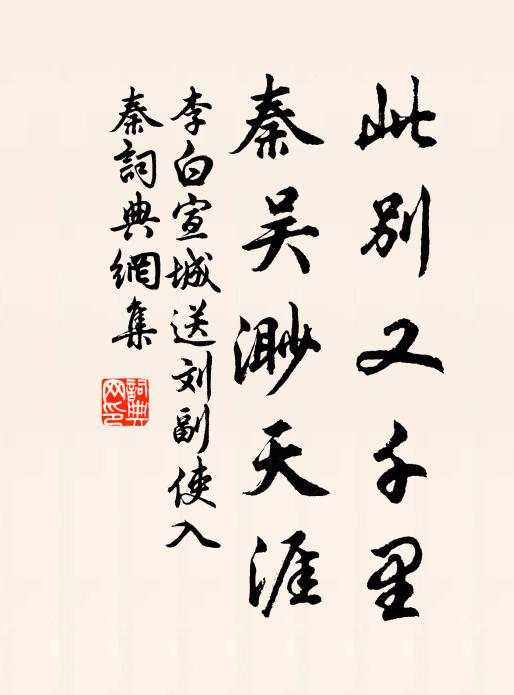 此别又千里
秦吴渺天涯
李白宣城送刘副使入
秦詞典網集
詞典网印